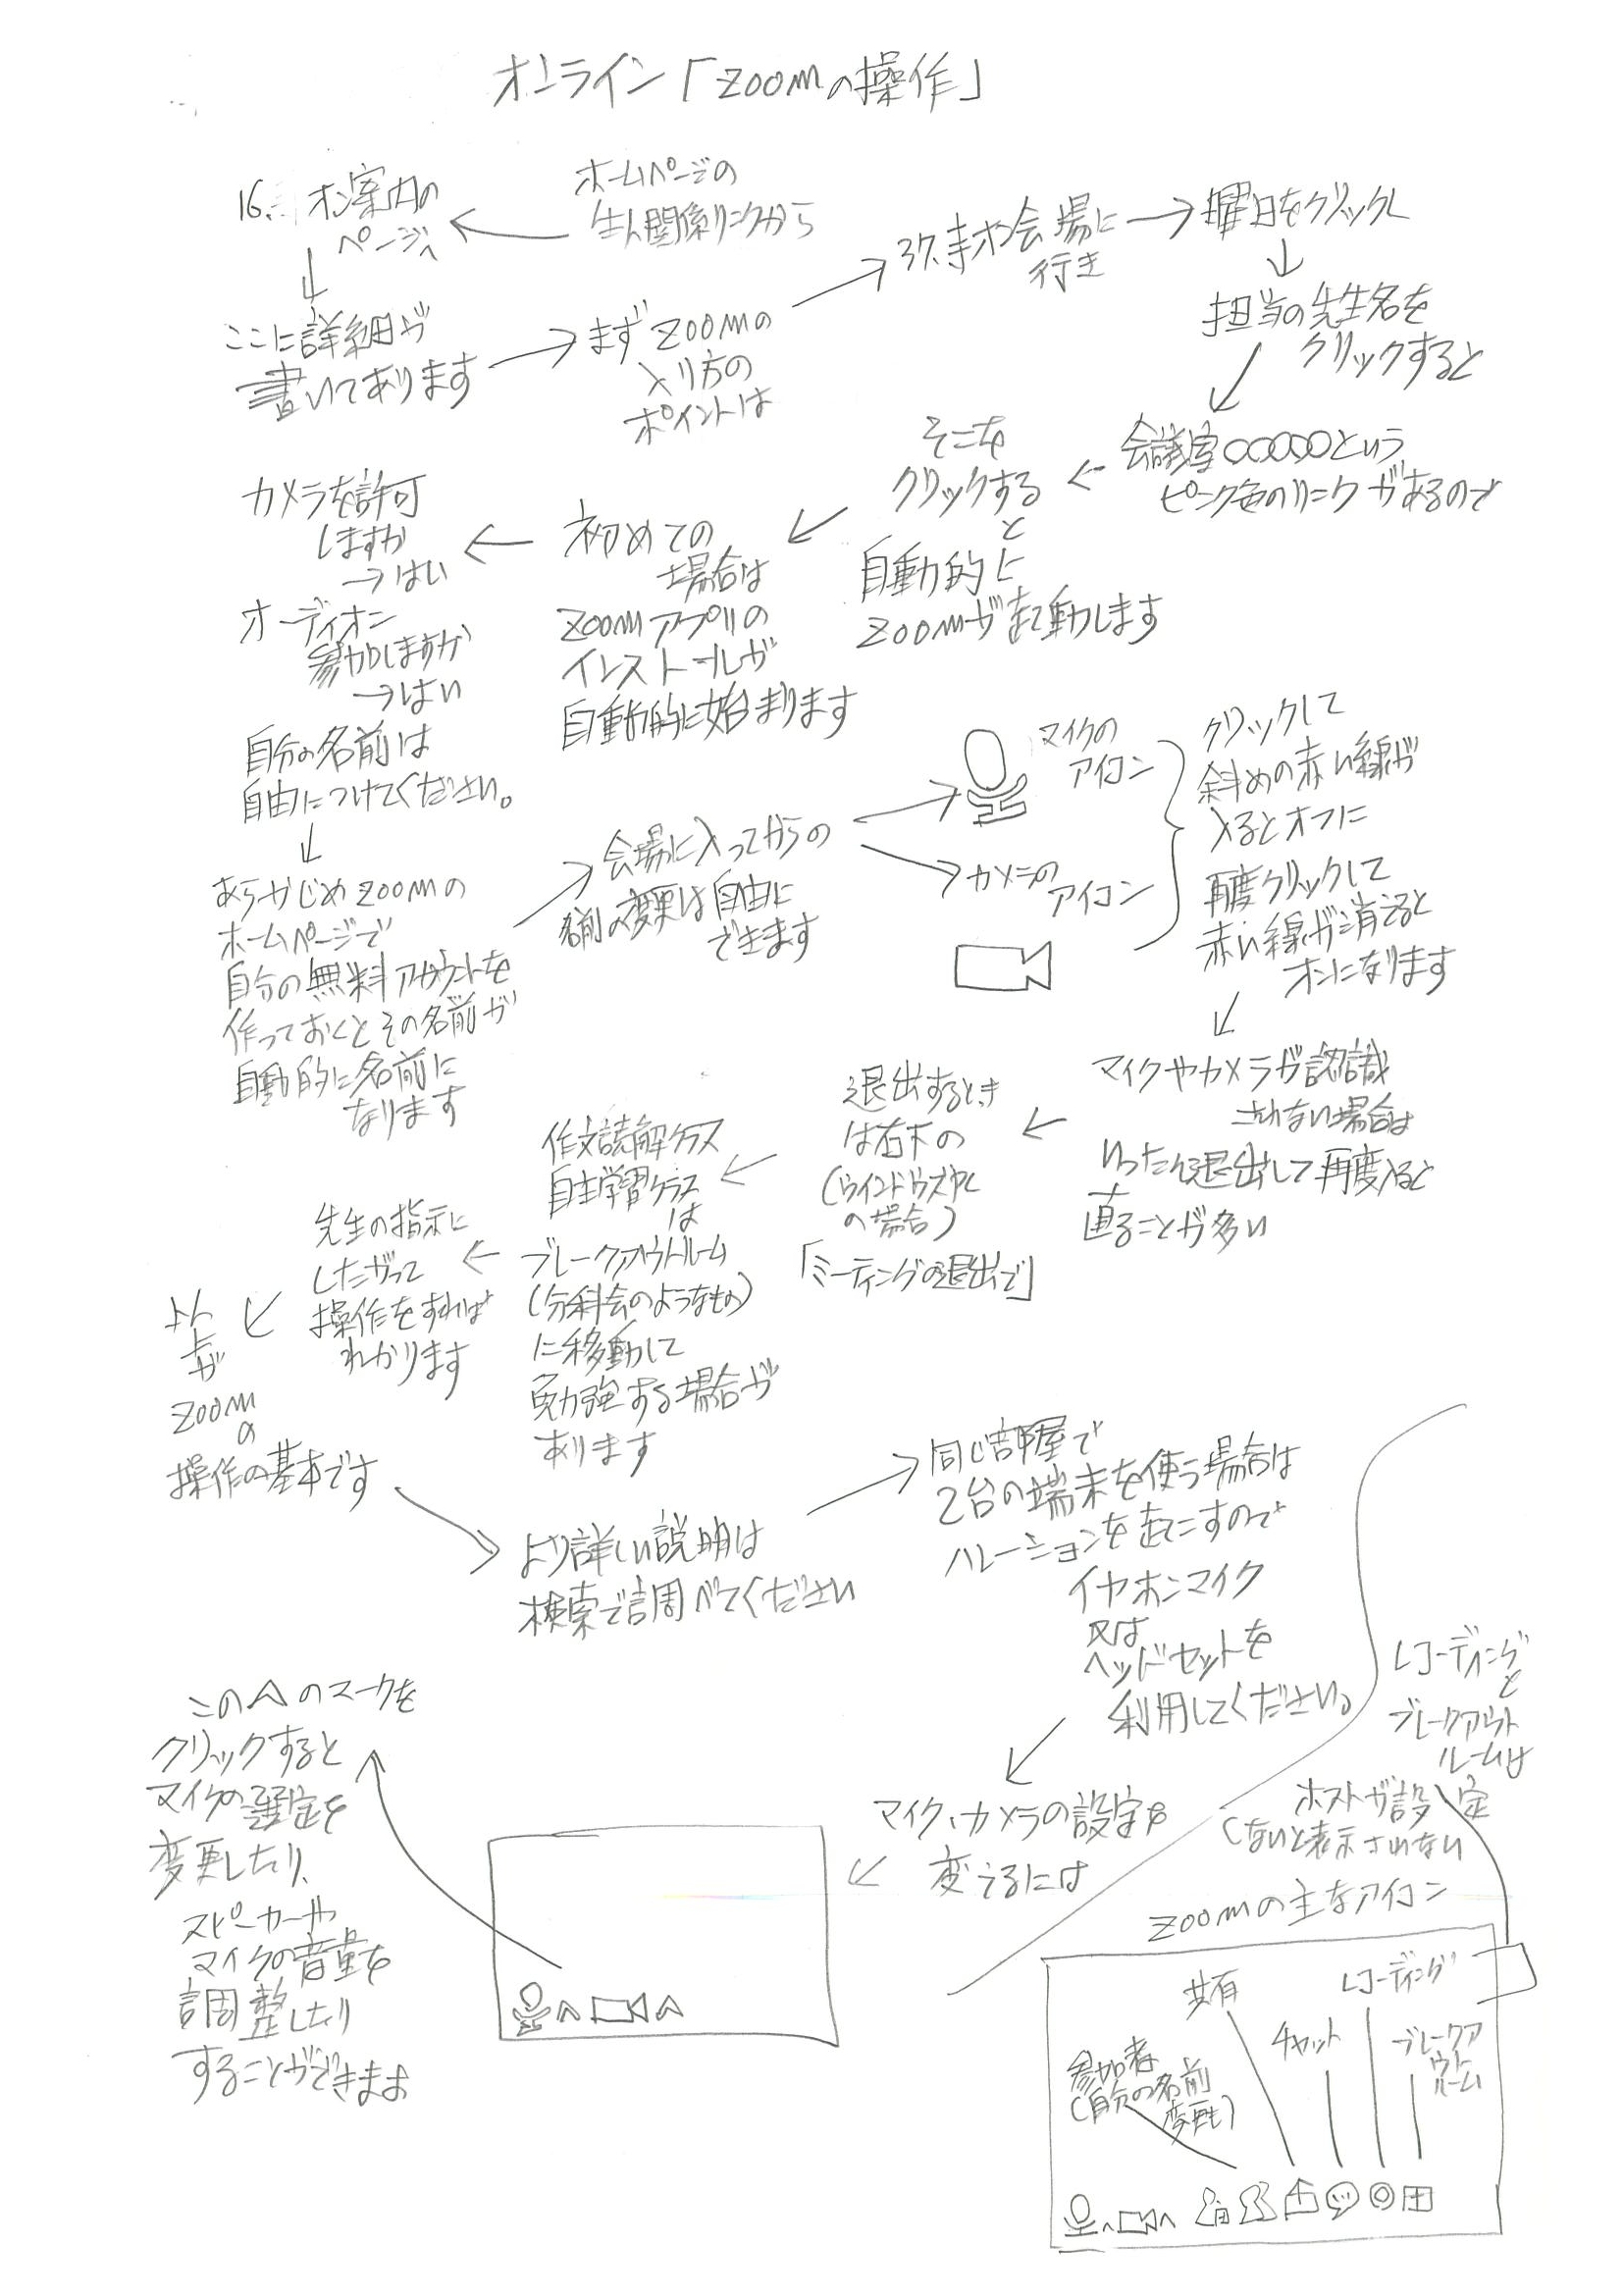 オンライン「zoomの操作」
ホームページの
生人関係リンクから
16. オン案内の
ページへ
ここに詳細が
書いてあります
まずzoomの
入り方の
ポイントは
次、オン会場に
行き
曜日をクリックし
担当の先生名を
クリックすると
会議室○○○○○という
ピンク色のリンクがあるので
そこを
クリックする
と
自動的に
zoomが起動します
初めての
場合は
zoomアプリの
インストールが
自動的に始まります
カメラを許可
しますか
→はい
オーディオに
参加しますか
→はい
自分の名前は
自由につけてください。
あらかじめzoomの
ホームページで
自分の無料アカウントを
作っておくとその名前が
自動的に名前に
なります
会場に入ってからの
名前の変更は自由に
できます
マイクの
アイコン
カメラの
アイコン
クリックして
斜めの赤い線が
入るとオフに
再度クリックして
赤い線が消えると
オンになります
マイクやカメラが認識
されない場合は
いったん退出して再度入ると
直ることが多い
退出するとき
は右下の
(ウインドウズPC
の場合)
「ミーティングの退出で」
作文読解クラス
自主学習クラス
は
ブレークアウトルーム
(分科会のようなもの)
に移動して
勉強する場合が
あります
先生の指示に
したがって
操作をすれば
わかります
以
上
が
zoom
の
操作の基本です
より詳しい説明は
検索で調べてください
同じ部屋で
2台の端末を使う場合は
ハレーションを起こすので
イヤホンマイク
又は
ヘッドセットを
利用してください。
マイク、カメラの設定を
変えるには
この^のマークを
クリックすると
マイクの選定を
変更したり、
スピーカーや
マイクの音量を
調整したり
することができます
レコーディング
と
ブレークアウト
ルームは
ホストが設定
しないと表示されない
zoomの主なアイコン
共有
レコーディング
チャット
ブレークア
ウト
ルーム
参加者
(自分の名前
変更も)